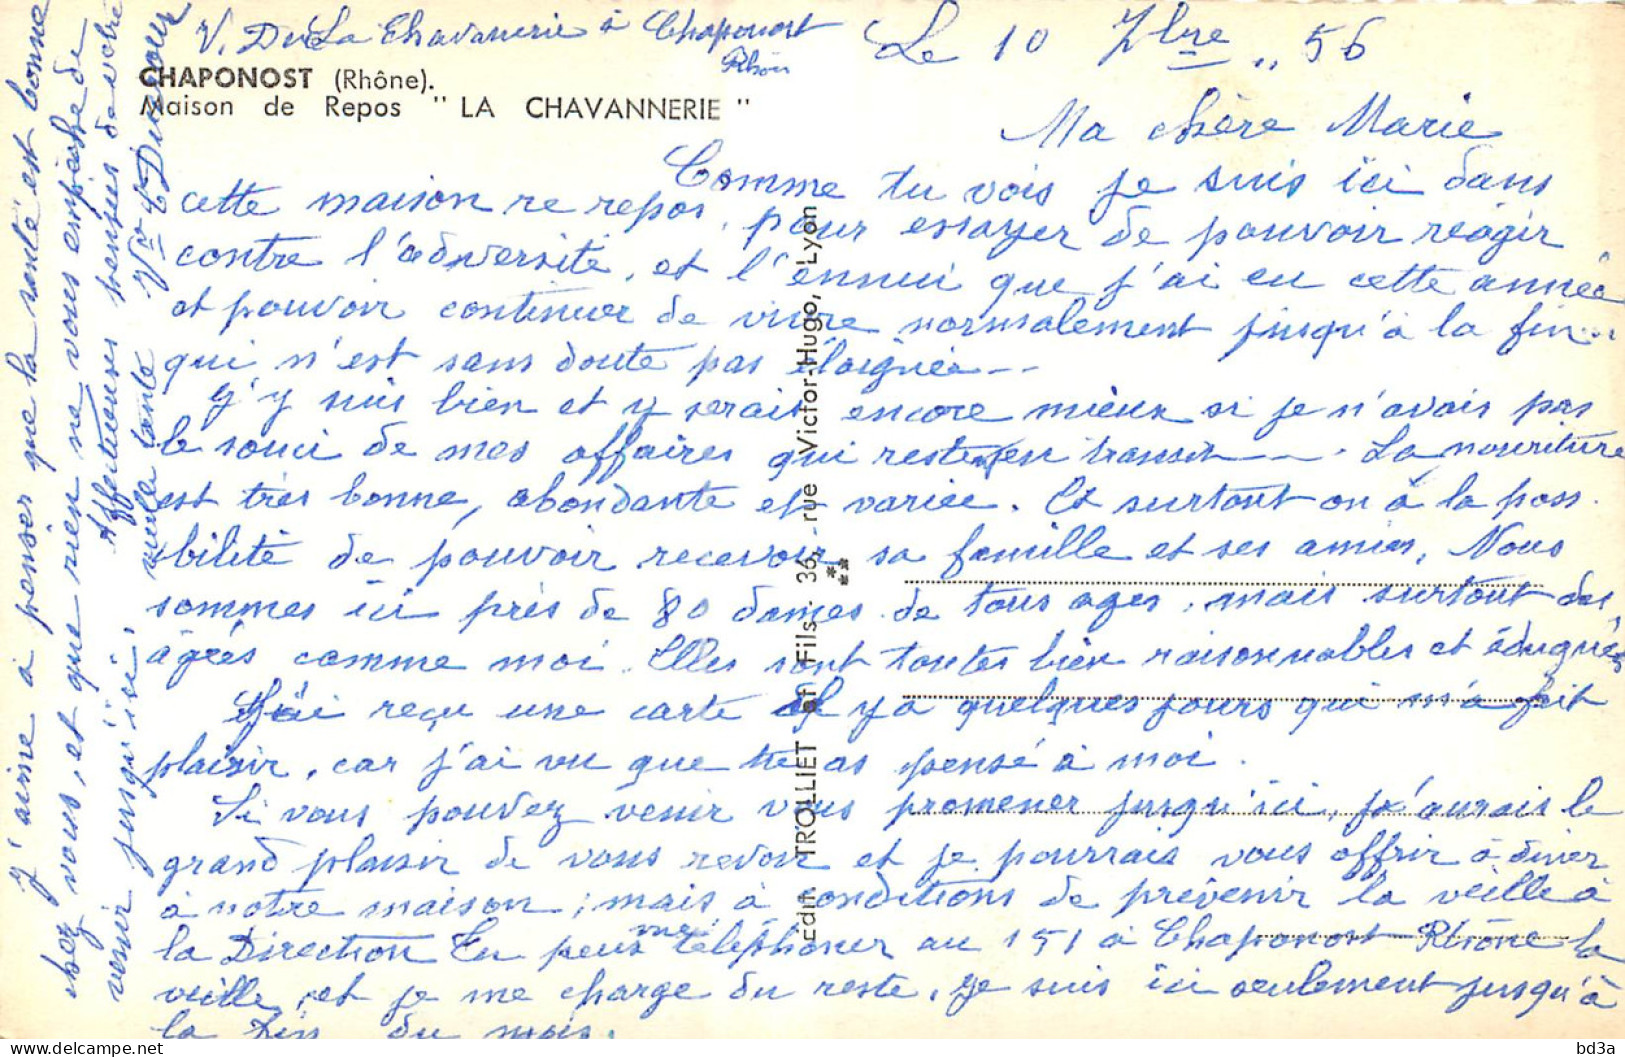 V. De La Chavanerie à Chaponost
Rhône
Le 10 7bre 56
CHAPONOST (Rhône).
Maison de Repos " LA CHAVANNERIE "
Ma chère Marie
Comme tu vois je suis ici dans
cette maison re repos, pour essayer de pouvoir réagir
contre l'adversité, et l'ennui que j'ai eu cette année
et pouvoir continuer de vivre normalement jusqu'à la fin...
qui n'est sans doute pas éloignée --
J'y suis bien et y serais encore mieux si je n'avais pas
le souci de mes affaires qui restent en transit --. La nouriture
est très bonne, abondante et variée. Et surtout on à la poss
ibilité de pouvoir recevoir sa famille et ses amies, Nous
sommes ici près de 80 dames de tous ages, mais surtout des
âgées comme moi. Elles sont toutes bien raisonnables et éduquées
J'ai reçu une carte il y a quelques jours qui m'a fait
plaisir, car j'ai vu que tu as pensé à moi.
Si vous pouvez venir vous promener jusqu'ici, j'aurais le
grand plaisir de vous revoir et je pourrais vous offrir à diner
à notre maison ; mais à conditions de prévenir la veille à
la Direction Tu peux me téléphoner au 151 à Chaponost Rhône la
veille, et je me charge du reste, je suis ici seulement jusqu'à
la fin du mois.
J'aime à penser que la santé est bonne
chez vous, et que rien ne vous empêche de
venir jusqu'ici.
Affectueuses pensées de votre
vieille tante
Vve C Dumour
Edit. TROLLIET et Fils - 36, rue Victor-Hugo, Lyon